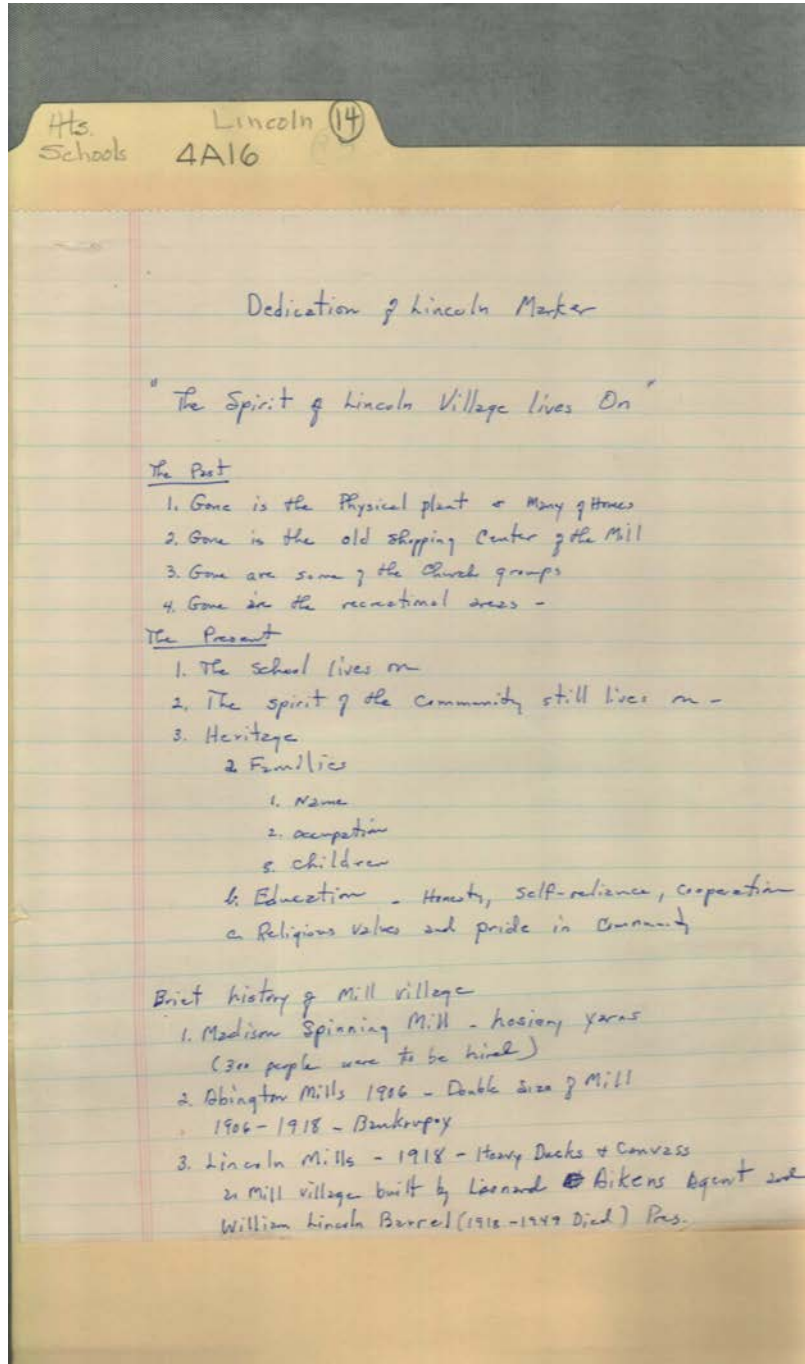 Hts. Lincoln 14
Schools 4A16
Dedication of Lincoln Marker
"The Spirit of Lincoln Village lives On"
The Past
1. Gone is the Physical plant & Many of Homes
2. Gone is the old Shopping Center of the Mill
3. Gone are some of the Church groups
4. Gone are the recreational areas -
The Present
1. The School lives on
2. The spirit of the Community still lives on -
3. Heritage
a Families
1. Name
2. occupation
3. children
b. Education - Honesty, self-reliance, cooperation
c. Religious values and pride in Community
Brief history of Mill village
1. Madison Spinning Mill - hosiery yarns
(300 people were to be hired)
2. Abington Mills 1906 - Double size of Mill
1906 - 1918 - Bankrupcy
3. Lincoln Mills - 1918 - Heavy Ducks & Canvass
a Mill village built by Leonard Aikens Agent and
William Lincoln Barrel (1918-1949 Died) Pres.